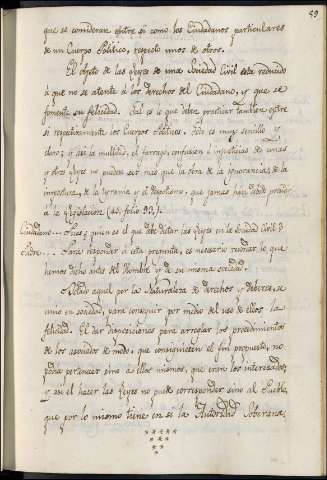 89
que se consideran entre si como los Ciudadanos particulares
de un Cuerpo Politico, respecto unos de otros.
El objeto de las Leyes de una Sociedad Civil esta reducido
à que no se atente à los derechos del Ciudadano, y que se
fomente su felicidad. Tal es lo que deben practicar tambien entre
si respectivamente los Cuerpos Politicos. Esto es muy sencillo y
claro; y asi la multitud, el farrago, confusion è injusticias de unas
y otras leyes no pueden ser mas que la obra de la ignorancia, de la
impostura, de la tyrania y el despotismo, que jamas han debido
à la Legislacion. (43, folio 93.)
Ciudadano... Pues quien es el que debe dictar las leyes en la Sociedad Civil?
Padre... Para responder à esta pregunta, es necesario recordar lo que
hemos dicho antes del Hombre y de su misma sociedad.
Dotado aquel por la Naturaleza de derechos y deberes, se
unio en sociedad, para conseguir por medio del uso de ellos la
felicidad. El dar disposiciones para arreglar los procedimientos
de los asociados de modo, que consiguiesen el fin propuesto, no
podia pertenecer sino à ellos mismos, que eran los interesados,
y en el hacer las Leyes no puede corresponder sino al Pueblo,
que por lo mismo tiene en si la Autoridad Soberana.